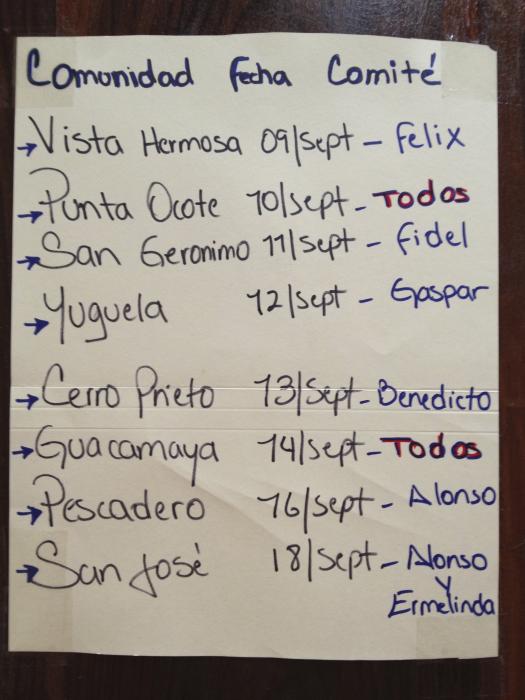 Comunidad fecha Comité
→Vista Hermosa 09/Sept - Felix
→Punta Ocote 10/sept - Todos
→San Geronimo 11/sept - Fidel
→Yuguela 12/sept - Gaspar
→Cerro Prieto 13/Sept - Benedicto
→Guacamaya 14/sept - Todos
→Pescadero 16/sept - Alonso
→San José 18/sept - Alonso
y
Ermelinda